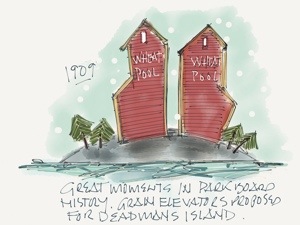 1909
WHEAT
POOL
WHEAT
POOL
GREAT MOMENTS IN PARK BOARD
HISTORY. GRAIN ELEVATORS PROPOSED
FOR DEADMANS ISLAND.